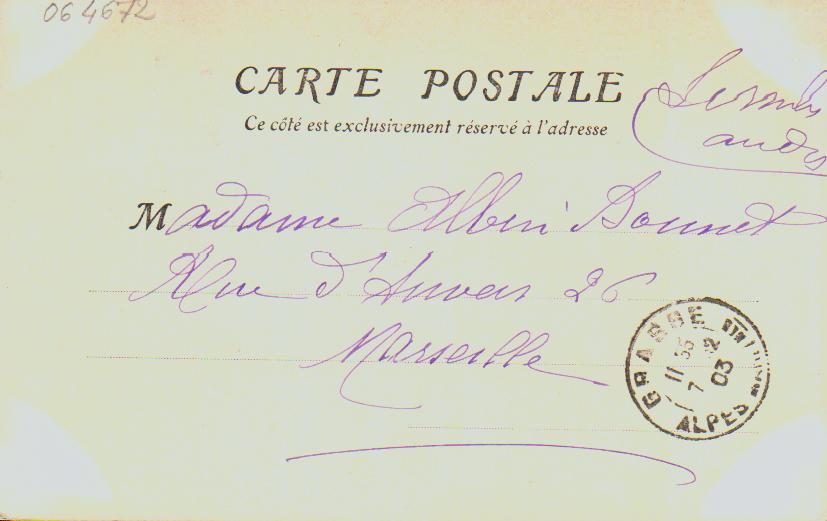 064672
CARTE POSTALE
Ce côté est exclusivement réservé à l'adresse
Madame Albin Bonnet
Rue d'Anvers 26
Marseille
GRASSE
11 35
7 03
ALPES